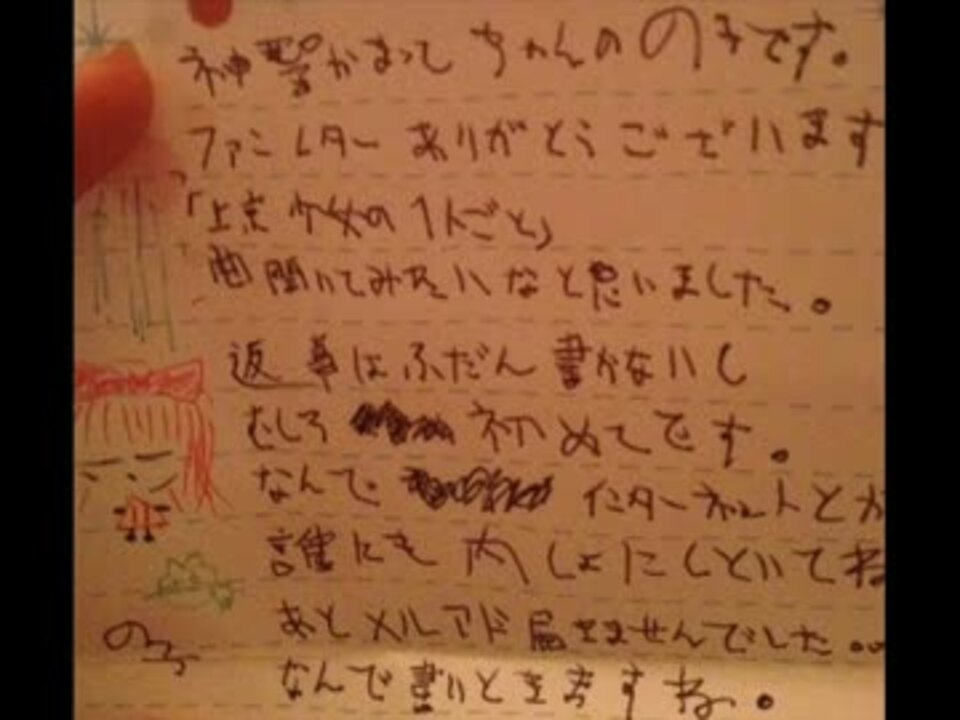 神聖かまってちゃんの の子です。
ファンレターありがとうございます
「上京少女の1人ごと」
曲聞いてみたいなと思いました。
返事はふだん書かないし
むしろ 初めてです。
なんで インターネットとか
誰にも内しょにしといてね
あとメルアド届きませんでした。。
なんで書いときますね。
の子